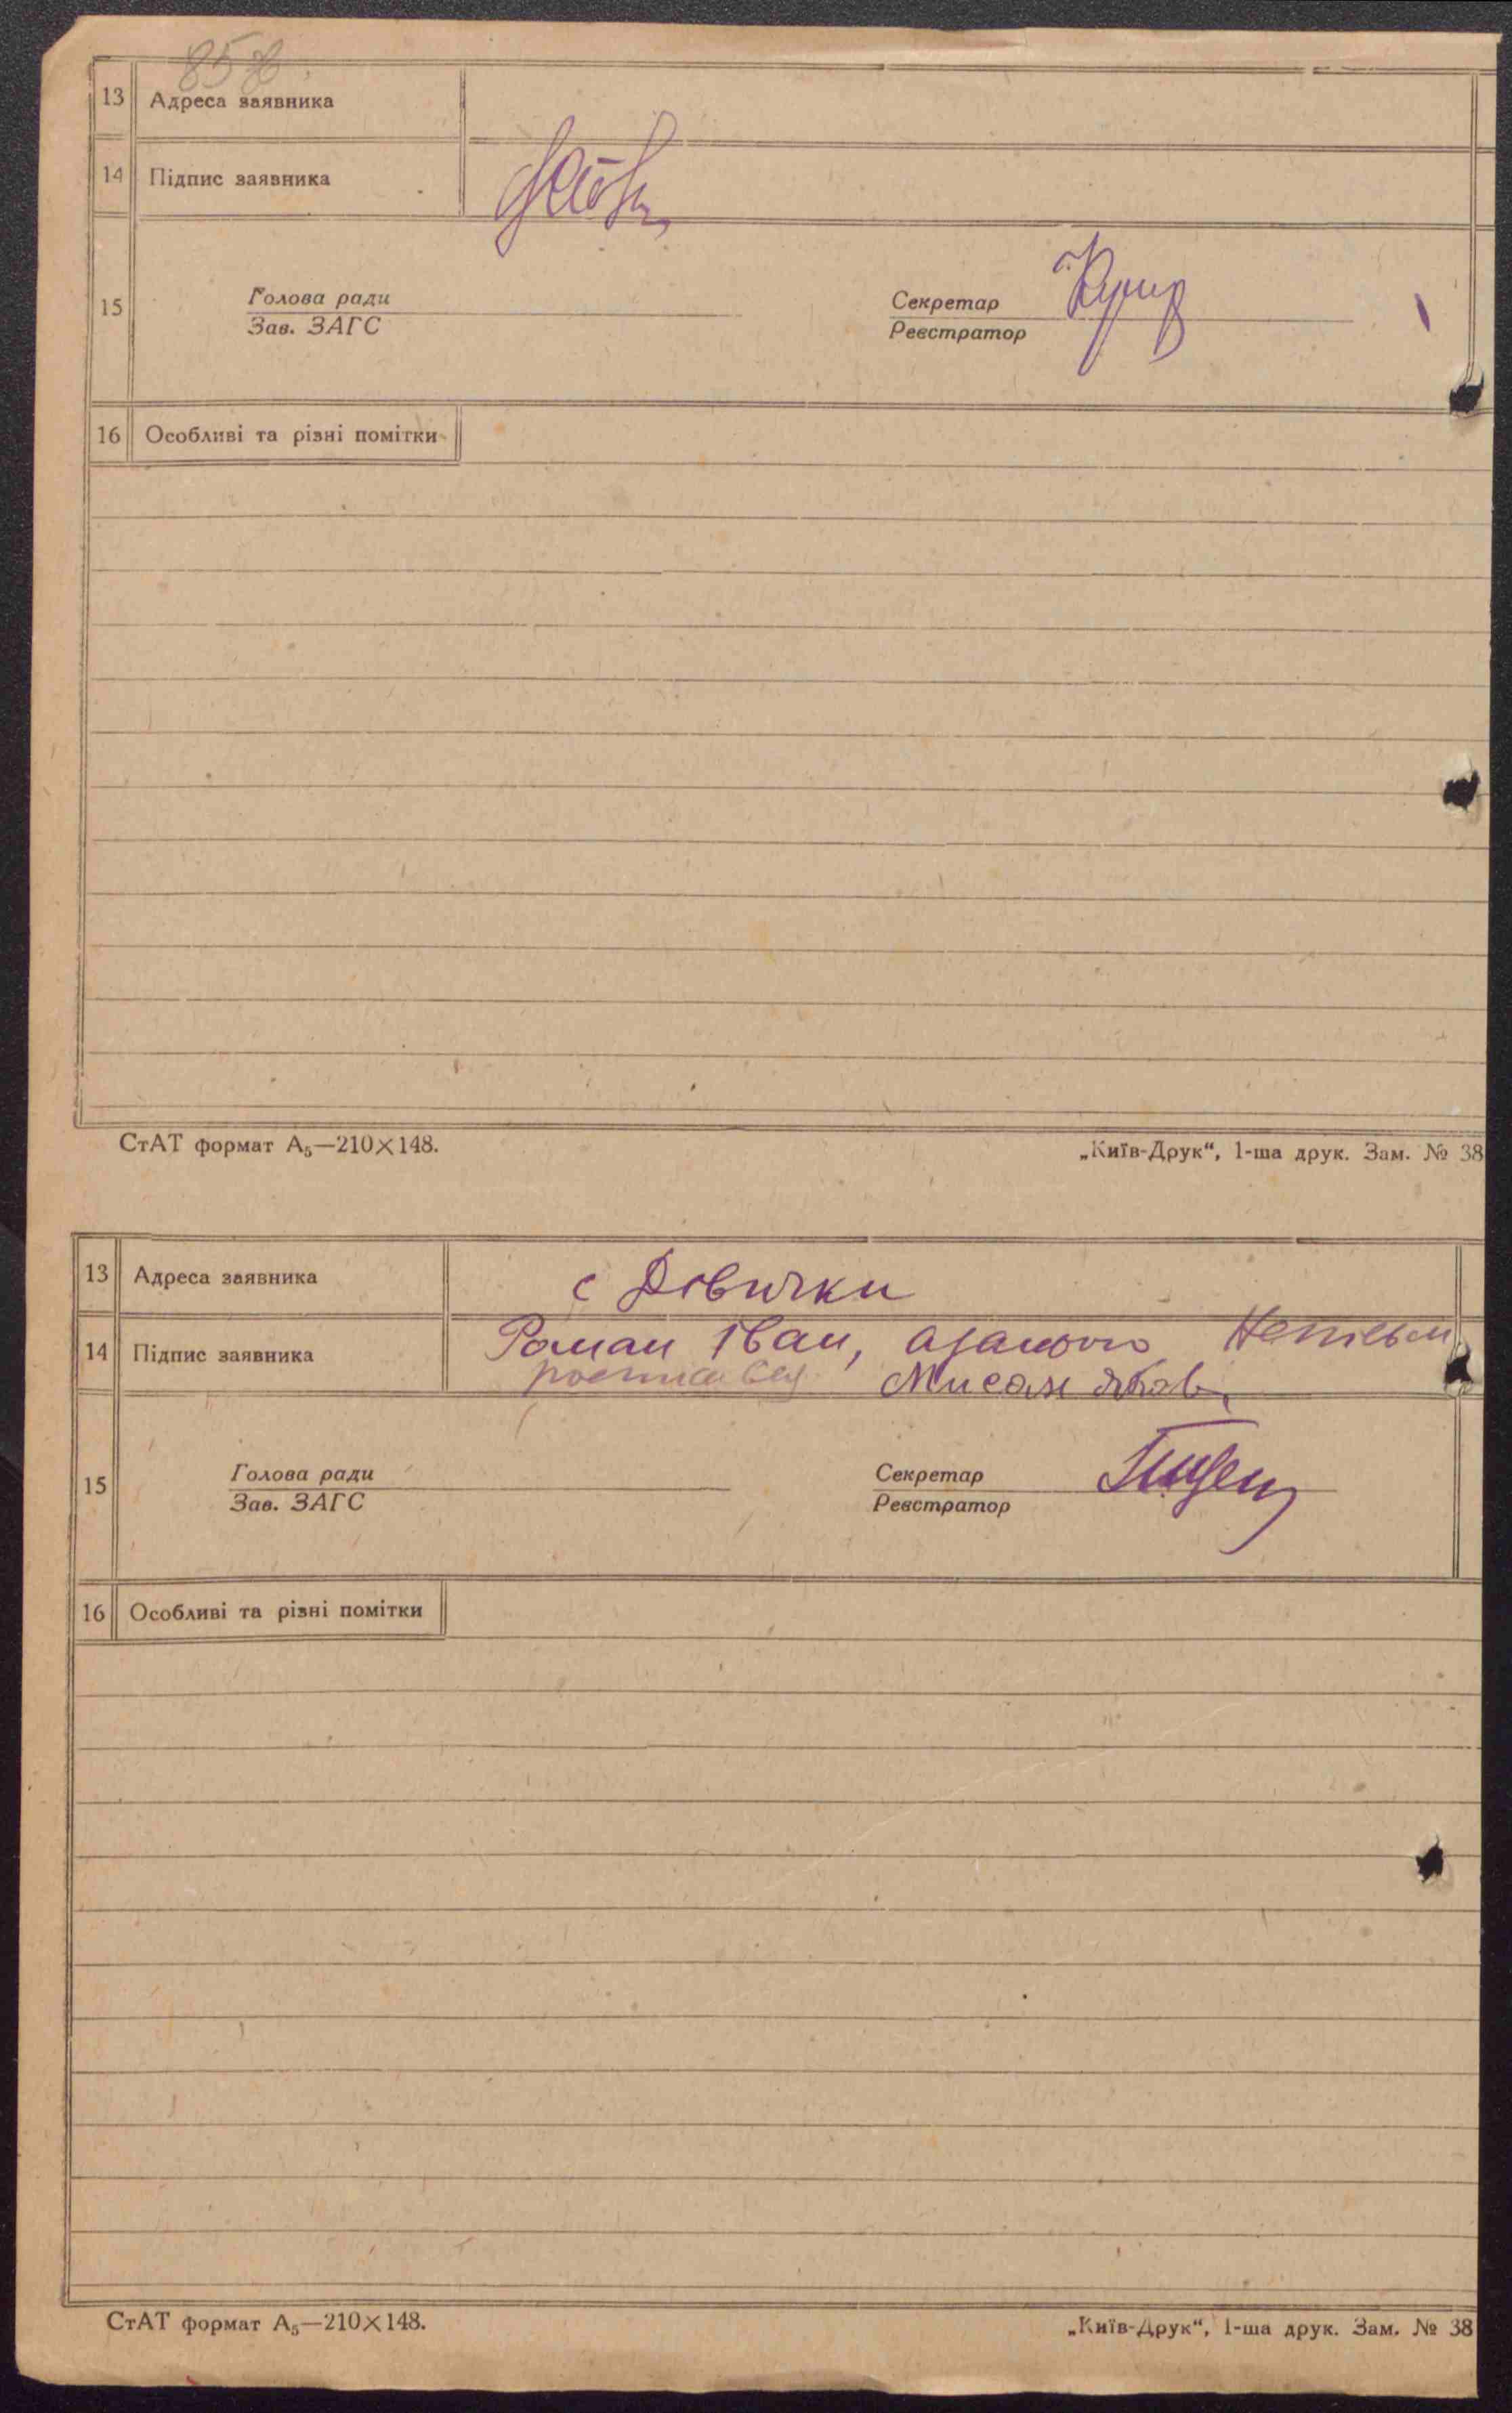 13 Адреса заявника
14 Підпис заявника
15 Голова ради
Зав. ЗАГС
Секретар
Реєстратор
16 Особливі та різні помітки
СтАТ формат А₅—210×148.
„Київ-Друк“, 1-ша друк. Зам. № 38
13 Адреса заявника с Дівички
14 Підпис заявника Роман Іван,
15 Голова ради
Зав. ЗАГС
Секретар
Реєстратор
16 Особливі та різні помітки
СтАТ формат А₅—210×148.
„Київ-Друк“, 1-ша друк. Зам. № 38